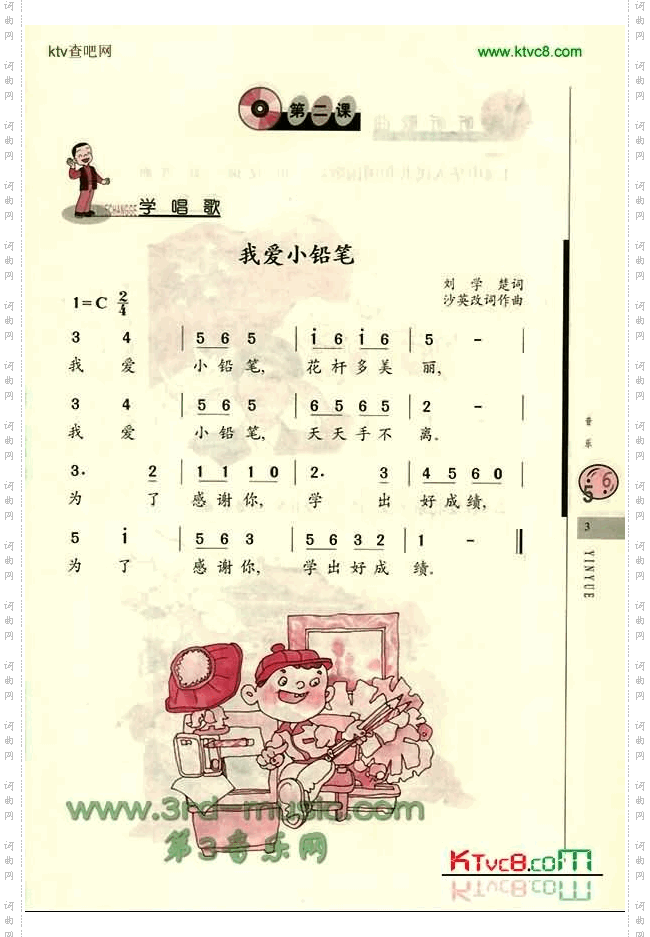 ktv查吧网 www.ktvc8.com
第二课
CHANGGE 学唱歌
我爱小铅笔
刘学楚词
1=C 2/4 沙英改词作曲
3 4 | 5 6 5 | i 6 i 6 | 5 - |
我 爱 小 铅 笔, 花 杆 多 美 丽,
3 4 | 5 6 5 | 6 5 6 5 | 2 - |
我 爱 小 铅 笔, 天 天 手 不 离。
3. 2 | 1 1 1 0 | 2. 3 | 4 5 6 0 |
为 了 感 谢 你, 学 出 好 成 绩,
5 i | 5 6 3 | 5 6 3 2 | 1 - ‖
为 了 感 谢 你, 学 出 好 成 绩。
音乐
5 6
3
YINYUE
www.3rd-music.com
第3音乐网
KTvc8.com
词曲网